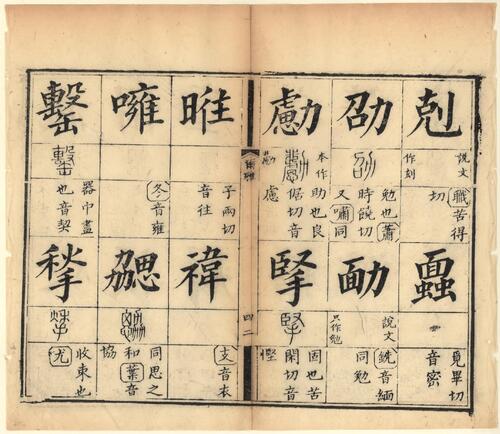 剋
說文
作刻
職苦得
切
劭
勉也蕭
時饒切
又嘯同
勴
本作勴
助也良
倨切音
慮
覓畢切
音密
勔
說文
只作勉
銑音緬
同勉
掔
固也苦
閑切音
慳
子兩切
音往
噰
冬音雍
罊
器中盡
也音契
禕
支音衣
勰
同思之
和葉音
協
揫
收束也
尤
四二